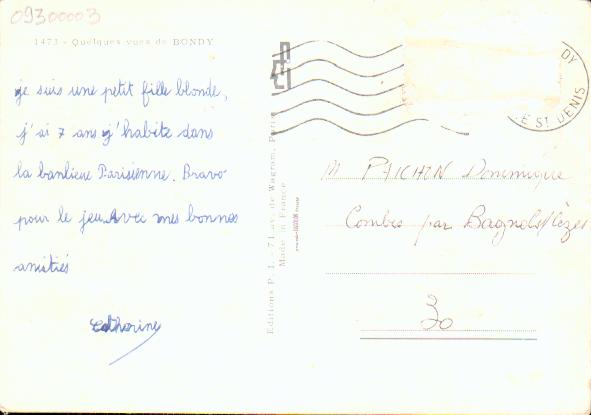 09300003
1473 - Quelques vues de BONDY
je suis une petit fille blonde,
j'ai 7 ans j'habite dans
la banlieue Parisienne. Bravo
pour le jeu. Avec mes bonnes
amitiés
Catherine
Editions P. I. - 71, av. de Wagram, Paris
Made in France
DY
E ST DENIS
M Dominique
Combes par Bagnols/Cèze
30